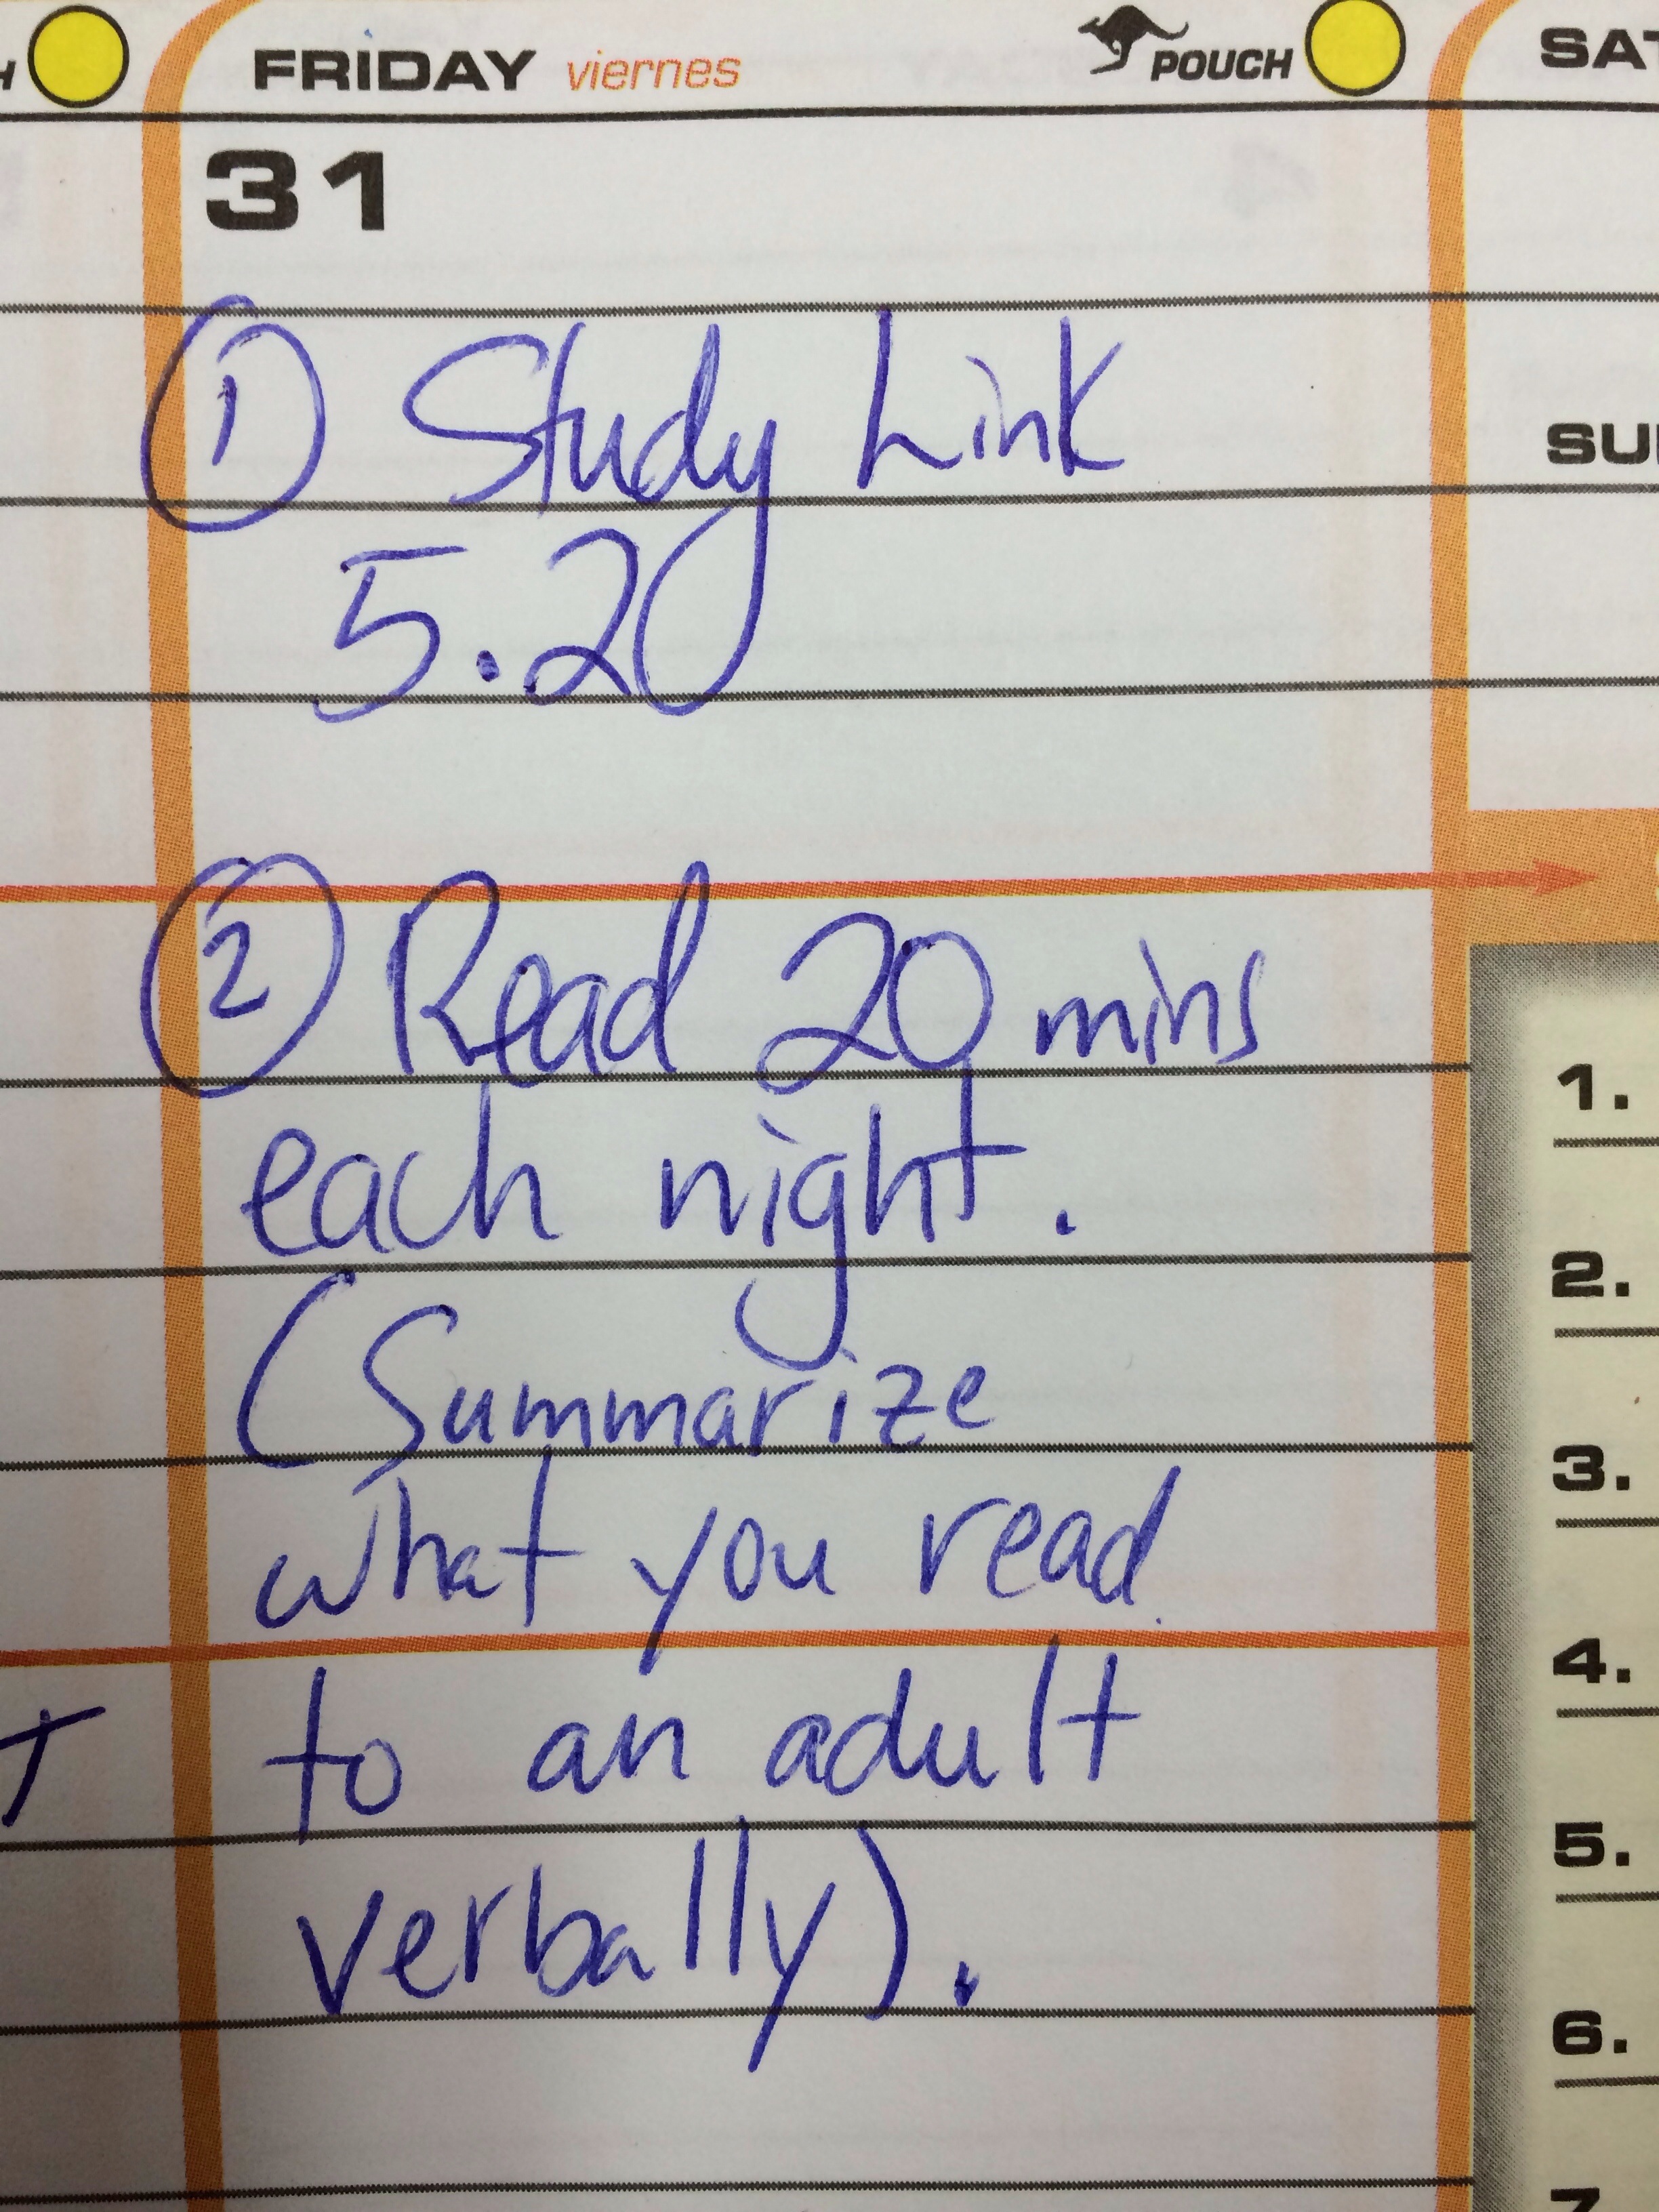 H
FRIDAY viernes
POUCH
SAT
31
① Study Link
5.20
SU
② Read 20 mins
each night.
(Summarize
what you read
to an adult
verbally).
T
1.
2.
3.
4.
5.
6.
7